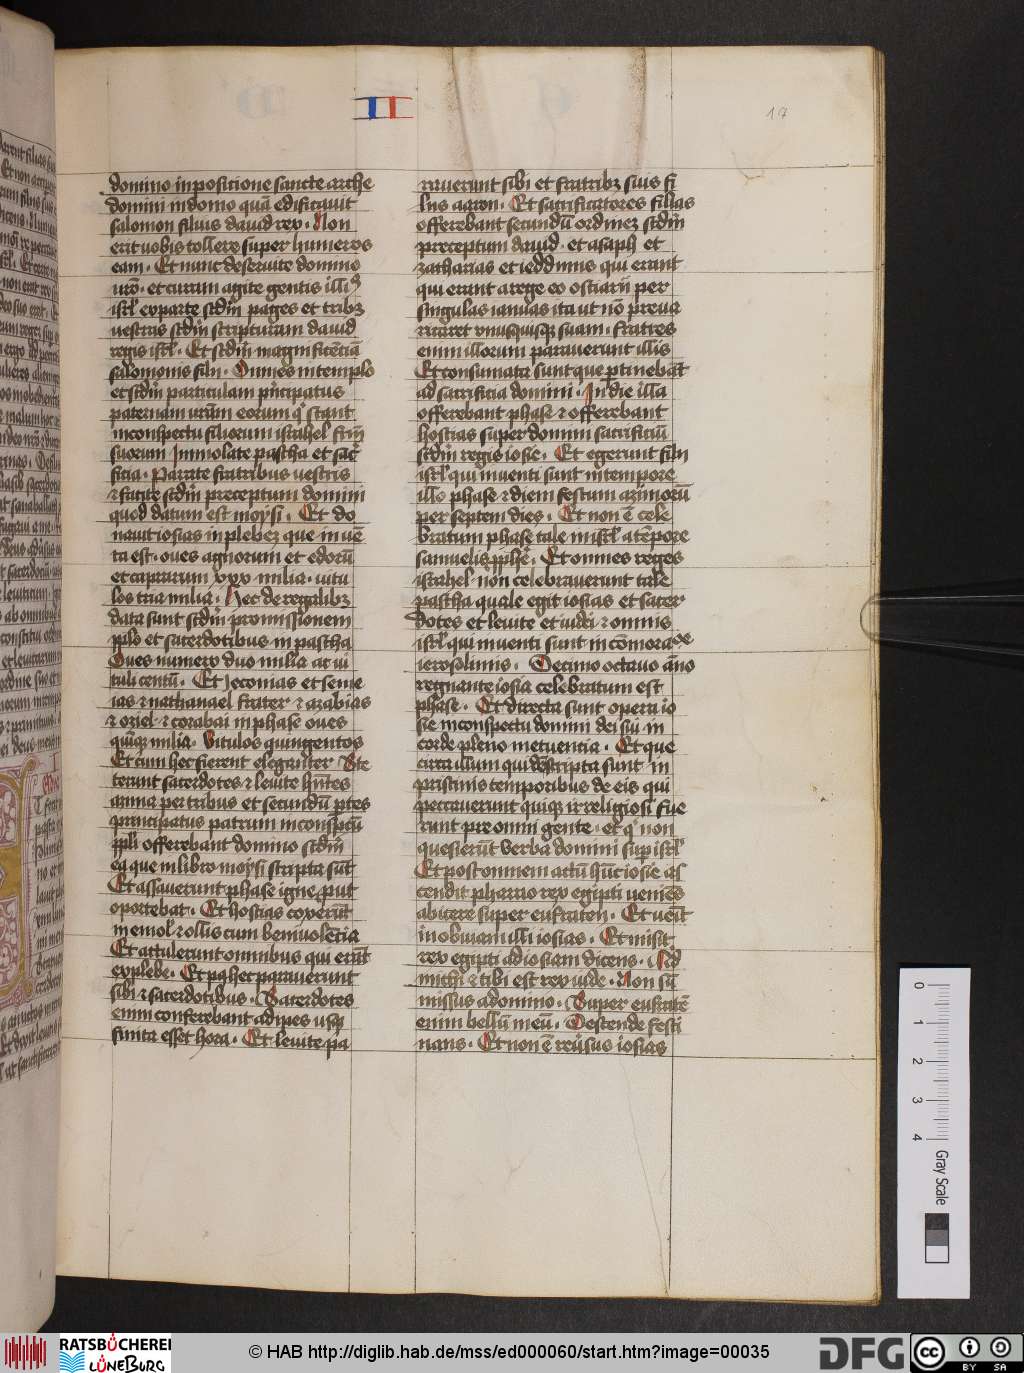 II
17
domino in positione sancte arche
domini in domo quā edificauit
salomon filius dauid rex. Non
erit uobis tollere super humeros
eam. Et nunc deseruite domino
uro. et curam agite gentis illiꝰ
isrl ex parte scdm pages et tribꝫ
uestras scdm scripturam dauid
regis isrl. Et scdm magnificēciā
salomonis filii. Omnes in templo
et scdm particulam principatus
paternam urām eorum qͥ stant
in conspectu filiorum israhel frm
suorum Immolate pascha et sacͥ
ficia. Parate fratribus uestris
⁊ facite scdm preceptum domini
quod datum est moysi. Et do
nauit iosias in plebeꝫ que in uē
ta est. oues agnorum et edorū
et caprarum xxx milia. uitu
los tria milia. Hec de regalibꝫ
data sunt scdm promissionem
pplo et sacerdotibus in pascha
Oues numero duo milia ac ui
tuli centū. Et Jeconias et seme
ias ⁊ nathanael frater ⁊ azabias
⁊ oziel ⁊ corabai in phase oues
quīqꝫ milia. Vitulos quingentos
Et cum hec fierent eleganter Ste
terunt sacerdotes ⁊ leuite hntes
azima per tribus et secundū ꝑtes
principatus patrum in conspcū
ppli offerebant domino scdm
ea que in libro moysi scripta sūt
Et assauerunt phase igne, put
oportebat. Et hostias coxerūt
in emol ⁊ ollis cum beniuolēcia
Et attulerunt omnibus qui erāt
ex plebe. Et p͛ hec parauerunt
sibi ⁊ sacerdotibus. Sacerdotes
enim conferebant adipes usqꝫ
finita esset hora. Et leuite pa
rauerunt sibi et fratribꝫ suis fi
liis aaron. Et sacrificatores filias
offerebant secundū ordineꝫ scdm
preceptum dauid. et asaph et
zacharias et ieddinus qui erant
qui erant a rege eo ostiarii per
singulas ianuas ita ut nō preua
ricaret vnusquisqꝫ suam. fratres
enim illorum parauerunt illis
Et consumata sunt que ꝑtinebāt
ad sacrificia domini. In die illa
offerebant phase ⁊ offerebant
hostias super domini sacrificiū
scdm regis iosie. Et egerunt filii
isrl qui inuenti sunt in tempore
illo phase ⁊ diem festum azimorū
per septem dies. Et non ē cele
bratum phase tale in isrl a tēpore
samuelis pphe. Et omnes reges
israhel non celebrauerunt tale
pascha quale egit iosias et sacer
dotes et leuite et iudei ⁊ omnis
isrl qui inuenti sunt in cōmoracōe
ierosolimis. Decimo octauo āno
regnante iosia celebratum est
phase. Et directa sunt opera io
sie in conspectu domini dei sui in
corde pleno metuencia. Et que
circa illum qui descripta sunt in
pristinis temporibus de eis qui
peccauerunt quiqꝫ irreligiosi fue
runt pre omni gente. et qͥ non
quesierūt verba domini sup isrl
Et post omnem actū hūc iosie as
cendit pharao rex egipti ueniēs
abicere super eufraten. Et uenit
in obuiam illi iosias. Et misit
rex egipti ad iosiam dicens. Qd
michi ⁊ tibi est rex iude. Non sū
missus a domino. Super eufratē
enim bellū meū. Descende festi
nans. Et non ē reuersus iosias
0 1 2 3 4
Gray Scale
RATSBÜCHEREI
LÜNEBURG
© HAB http://diglib.hab.de/mss/ed000060/start.htm?image=00035
DFG
CC BY SA